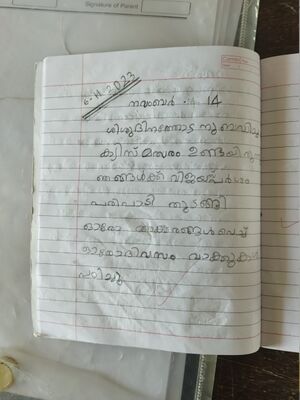 Signature of Parent
6-11-2023
നവംബർ - 14
ശിശുദിനത്തോട നുബന്ധിച്ച
ക്വിസ് മത്സരം ഉണ്ടയിരുന്നു
ഞങ്ങൾക്ക് വിജയസ്പർശം
പരിപാടി തുടങ്ങി
ഓരോ അക്ഷരങ്ങൾ വെച്ച്
ഓരോദിവസം വാക്കുകൾ
പഠിച്ചു